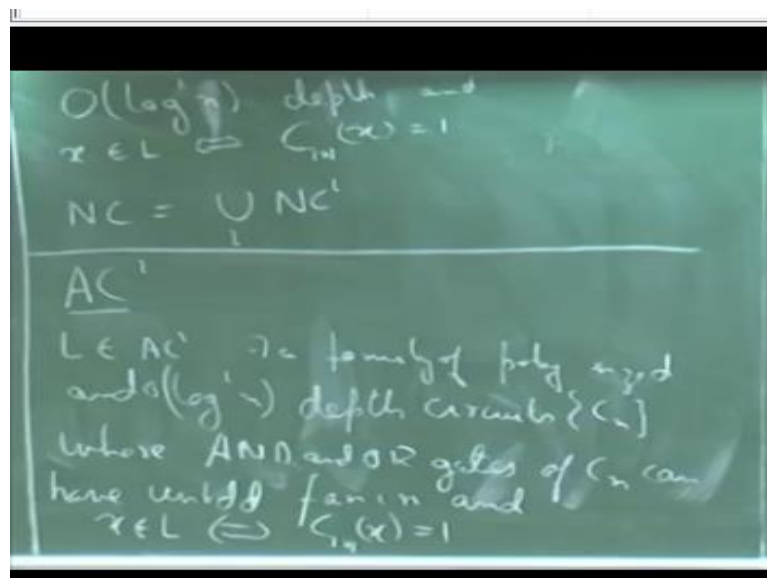 O(logⁱn) depth, and
x ∈ L ⇔ C|x|(x) = 1
NC = ∪ NCⁱ
i
ACⁱ
L ∈ ACⁱ ∃ a family of poly sized
and O(logⁱn) depth circuits {Cn}
whose AND and OR gates of Cn can
have unbdd fanin and
x ∈ L ⇔ C|x|(x) = 1